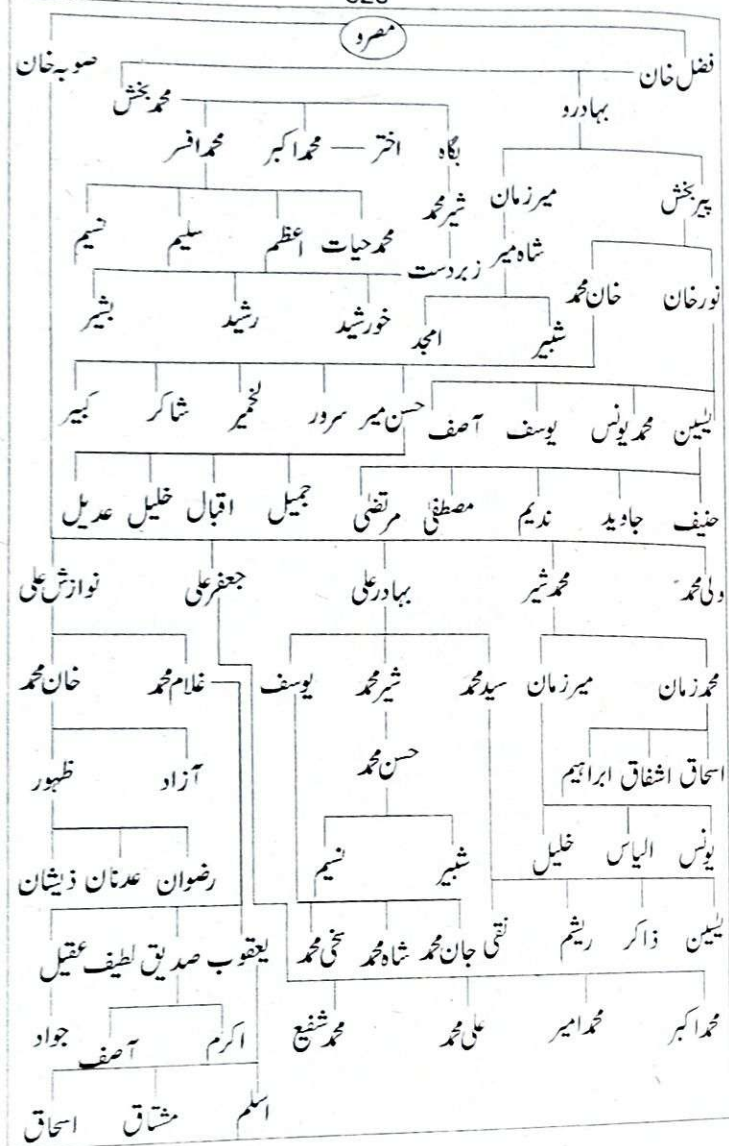 مصرو
فضل خان صوبہ خان
بہادرو محمد بخش
بگاہ اختر محمد اکبر محمد افسر
پیر بخش میر زمان شیر محمد
محمد حیات اعظم سلیم نسیم
شاہ میر زبردست
نور خان خان محمد
خورشید رشید بشیر
شبیر امجد
یٰسین محمد یونس یوسف آصف حسن میر سرور شاکر کبیر
حنیف جاوید ندیم مصطفیٰ مرتضیٰ جمیل اقبال خلیل عدیل
ولی محمد محمد شیر بہادر علی جعفر علی نوازش علی
محمد زمان میر زمان سید محمد شیر محمد یوسف غلام محمد خان محمد
اسحاق اشفاق ابراہیم حسن محمد آزاد ظہور
یونس الیاس خلیل شبیر نسیم رضوان عدنان ذیشان
یٰسین ذاکر ریشم نقی جان محمد شاہ محمد سخی محمد یعقوب صدیق لطیف عقیل
محمد اکبر محمد امیر علی محمد محمد شفیع اکرم آصف جواد
اسلم مشتاق اسحاق